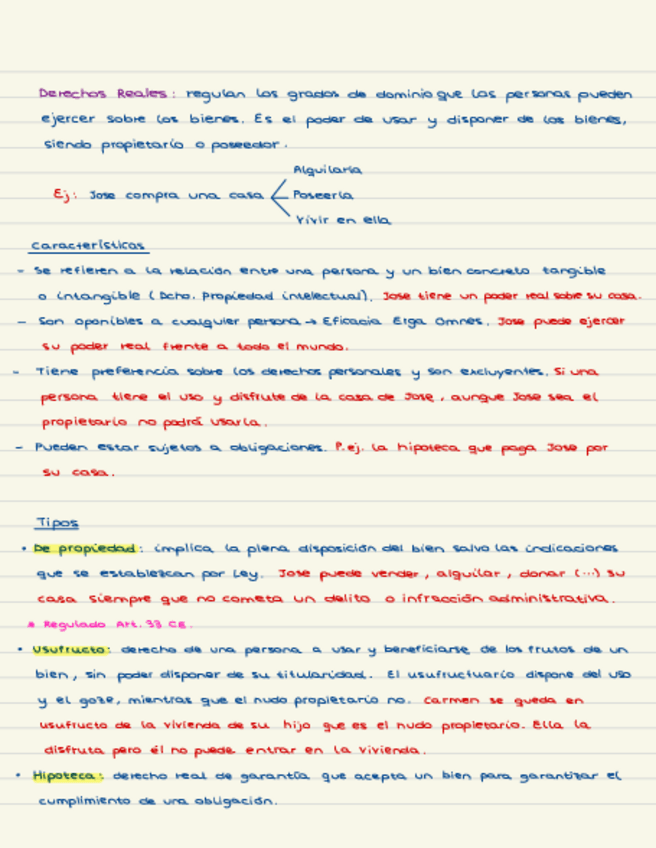 Derechos Reales: regulan los grados de dominio que las personas pueden
ejercer sobre los bienes. Es el poder de usar y disponer de los bienes,
siendo propietario o poseedor.
Alquilarla
Ej: Jose compra una casa Poseerla
Vivir en ella
Características
- Se refieren a la relación entre una persona y un bien concreto tangible
o intangible (Dcho. Propiedad intelectual). Jose tiene un poder real sobre su casa.
- Son oponibles a cualquier persona → Eficacia Erga Omnes. Jose puede ejercer
su poder real frente a todo el mundo.
- Tiene preferencia sobre los derechos personales y son excluyentes. Si una
persona tiene el uso y disfrute de la casa de Jose, aunque Jose sea el
propietario no podrá usarla.
- Pueden estar sujetos a obligaciones. P.ej. la hipoteca que paga Jose por
su casa.
Tipos
• De propiedad: implica la plena disposición del bien salvo las indicaciones
que se establezcan por Ley. Jose puede vender, alquilar, donar (...) su
casa siempre que no cometa un delito o infracción administrativa.
* Regulado Art. 33 CE.
• Usufructo: derecho de una persona a usar y beneficiarse de los frutos de un
bien, sin poder disponer de su titularidad. El usufructuario dispone del uso
y el goze, mientras que el nudo propietario no. Carmen se queda en
usufructo de la vivienda de su hijo que es el nudo propietario. Ella la
disfruta pero él no puede entrar en la vivienda.
• Hipoteca: derecho real de garantía que acepta un bien para garantizar el
cumplimiento de una obligación.